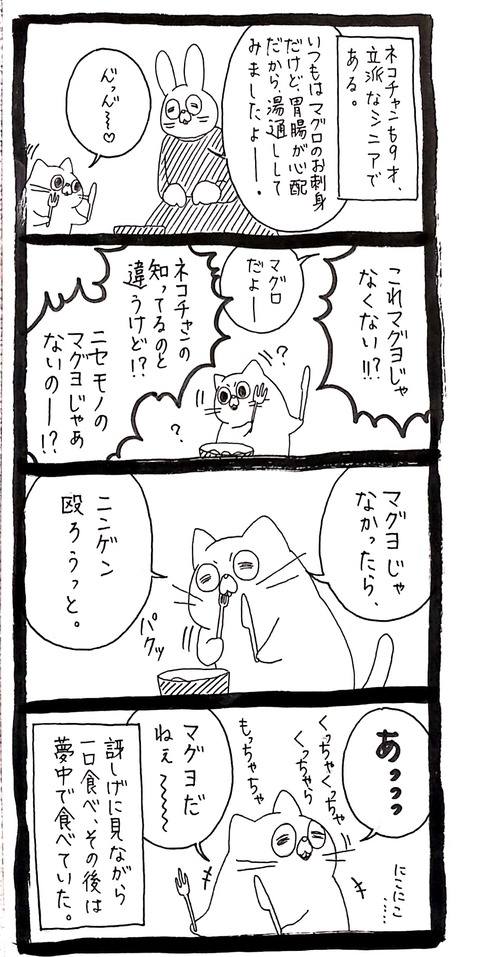 ネコチャンも9才、
立派なシニアで
ある。
いつもはマグロのお刺身
だけど、胃腸が心配
だから、湯通しして
みましたよー。
んっん〜♡
これマグヨじゃ
なくない!!?
マグロ
だよー
?
ネコチャンの
知ってるのと
違うけど!?
?
ニセモノの
マグヨじゃあ
ないのー!?
マグヨじゃ
なかったら、
ニンゲン
殴ろうっと。
パクッ
あっっっっ
にこにこ……
くっちゃくっちゃ
くっちゃら
もっちゃちゃ
マグヨだ
ねぇ〜〜〜
訝しげに見ながら
一口食べ、その後は
夢中で食べていた。